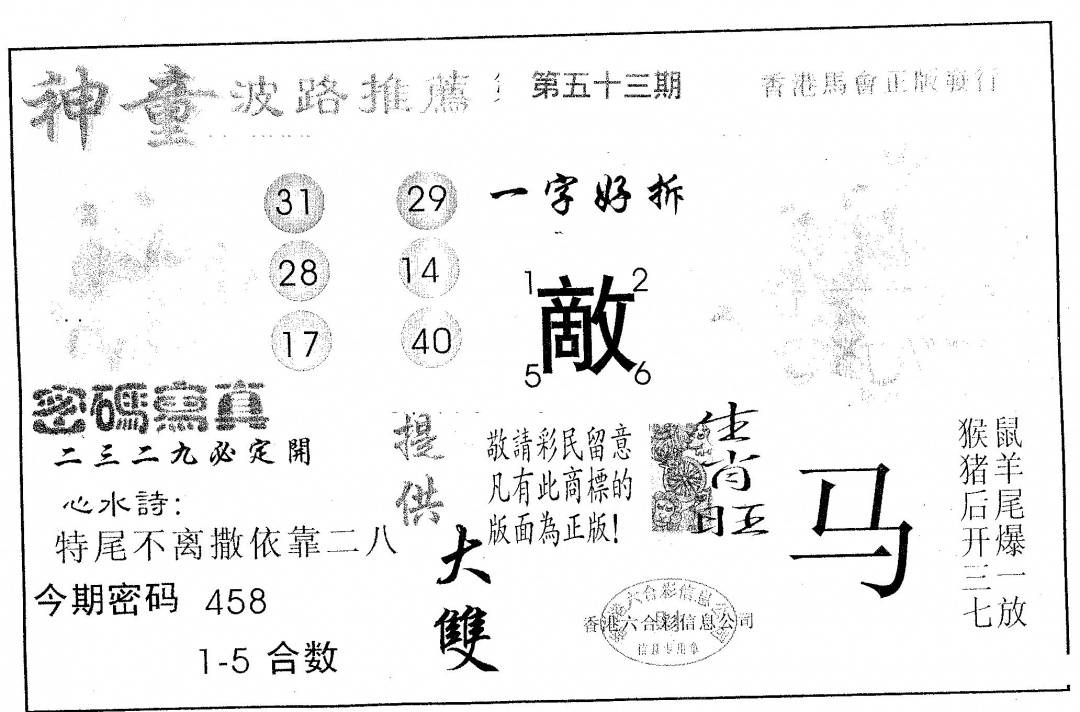 神童波路推薦
第五十三期
香港馬會正版發行
31 29
28 14
17 40
一字好拆
1 2
敵
5 6
密碼寫真
二三二九必定開
心水詩:
特尾不离撒依靠二八
今期密码 458
1-5 合数
提供
大雙
敬請彩民留意
凡有此商標的
版面為正版!
生肖旺
马
鼠羊尾爆一放
猴猪后开三七
香港六合彩信息公司